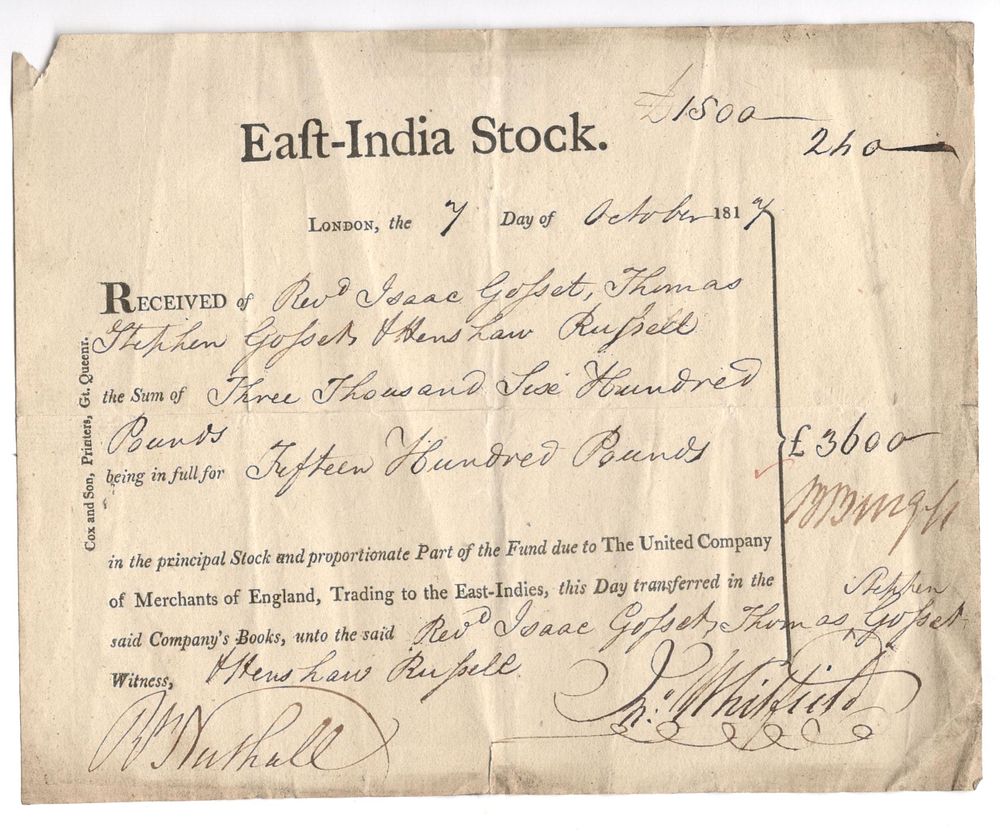 £1500
240
Eaſt-India Stock.
LONDON, the 7 Day of October 1817
RECEIVED of Revd Isaac Goſset, Thomas
Stephen Goſset & Henshaw Ruſsell
the Sum of Three Thousand Six Hundred
Pounds
being in full for Fifteen Hundred Pounds
£ 3600
in the principal Stock and proportionate Part of the Fund due to The United Company
of Merchants of England, Trading to the East-Indies, this Day transferred in the
Stephen
said Company's Books, unto the said Revd Isaac Goſset, Thomas ^ Goſset
& Henshaw Ruſsell
Witness,
Jno. Whitfield
Nuthall
Cox and Son, Printers, Gt. Queenr.